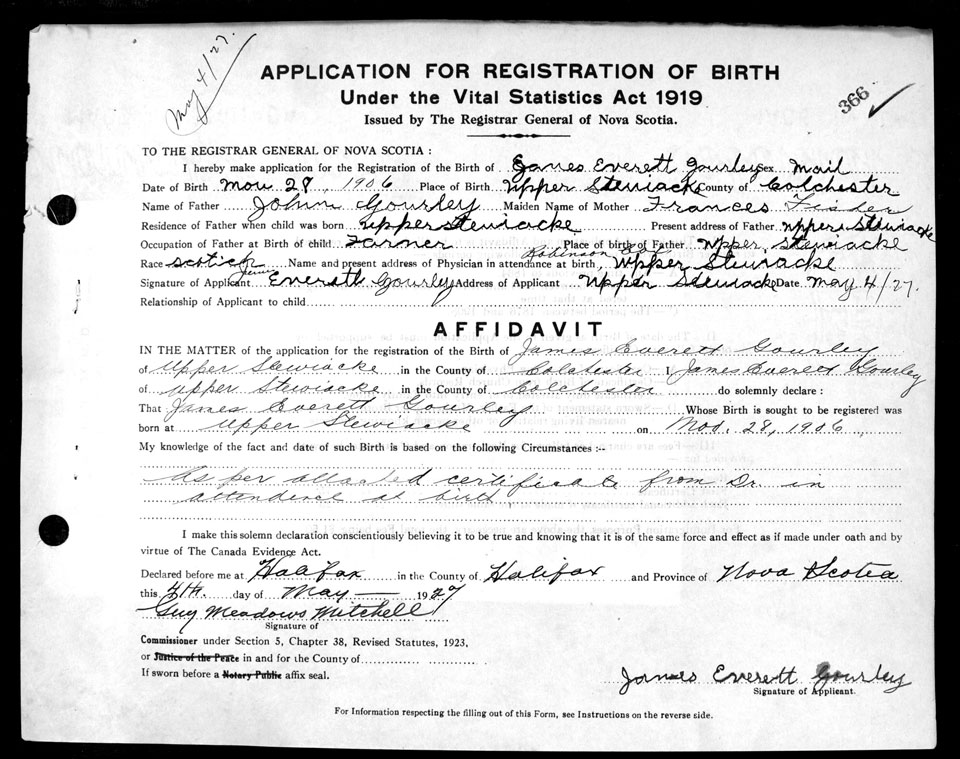 May 4/27.
APPLICATION FOR REGISTRATION OF BIRTH
Under the Vital Statistics Act 1919
366
Issued by The Registrar General of Nova Scotia.
TO THE REGISTRAR GENERAL OF NOVA SCOTIA :
I hereby make application for the Registration of the Birth of James Everett Gourley Sex Mail
Date of Birth Nov 28, 1906 Place of Birth Upper Stewiack County of Colchester
Name of Father John Gourley Maiden Name of Mother Frances
Residence of Father when child was born upper Stewiacke Present address of Father upper Stewiacke
Occupation of Father at Birth of child Farmer Place of birth of Father Upper Stewiacke
Race scotich Name and present address of Physician in attendance at birth, Robinson Upper Stewiacke
Signature of Applicant James Everett Gourley Address of Applicant Upper Stewiack Date May 4/27.
Relationship of Applicant to child
AFFIDAVIT
IN THE MATTER of the application for the registration of the Birth of James Everett Gourley
of Upper Stewiacke in the County of Colchester I James Everett Gourley
of Upper Stewiacke in the County of Colchester do solemnly declare :
That James Everett Gourley Whose Birth is sought to be registered was
born at Upper Stewiacke on Nov. 28, 1906
My knowledge of the fact and date of such Birth is based on the following Circumstances :--
As per attacted certificate from Dr. in
at birth
I make this solemn declaration conscientiously believing it to be true and knowing that it is of the same force and effect as if made under oath and by
virtue of The Canada Evidence Act.
Declared before me at Halifax in the County of Halifax and Province of Nova Scotia
this 4th. day of May — 1927
Guy Meadows Mitchell
Signature of
Commissioner under Section 5, Chapter 38, Revised Statutes, 1923,
or Justice of the Peace in and for the County of
If sworn before a Notary Public affix seal.
James Everett Gourley
Signature of Applicant.
For Information respecting the filling out of this Form, see Instructions on the reverse side.